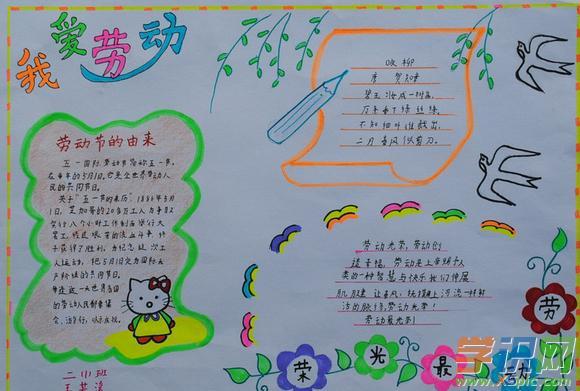 我爱劳动
劳动节的由来
五一国际劳动节简称五一节,
在每年的5月1日。它是全世界劳动人
民的共同节日。
关于"五一节的来历"1886年5月
1日,芝加哥的20多万工人为争取
实行八个小时工作制而举行大
罢工,经过艰苦的流血斗争,终
于获得了胜利。为纪念这次工
人运动,
把5月1日定为国际无
产阶级的共同节日。
这一天世界各国
的劳动人民都要集
会、游行,以示庆祝。
二小班
咏柳
唐 贺知章
碧玉妆成一树高,
万条垂下绿丝绦。
不知细叶谁裁出,
二月春风似剪刀。
劳动光荣,劳动创
造幸福,劳动是上帝赐予人
类的一种智慧与快乐我们伸展
肌肤让春风
劳动最光荣!
荣光最劳动
学识网
www.xspic.com